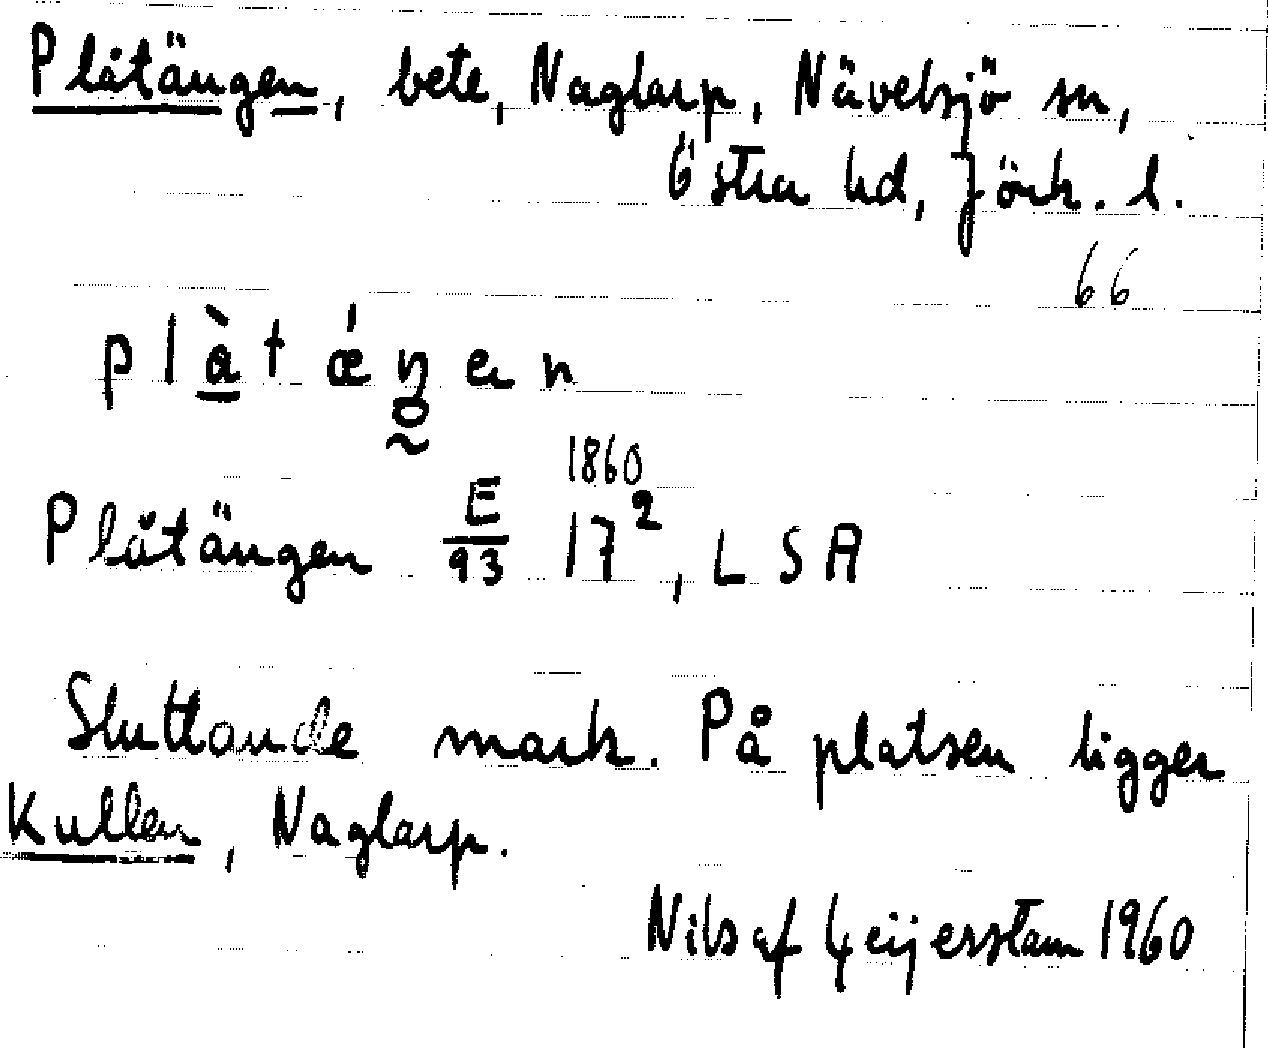 Plåtängen, bete, Naglarp, Nävelsjö sn,
Östra hd, Jönk. l.
66
plåtǽŋen
1860
Plåtängen E/93 17², LSA
Sluttande mark. På platsen ligger
Kullen, Naglarp.
Nils af Geijerstam 1960